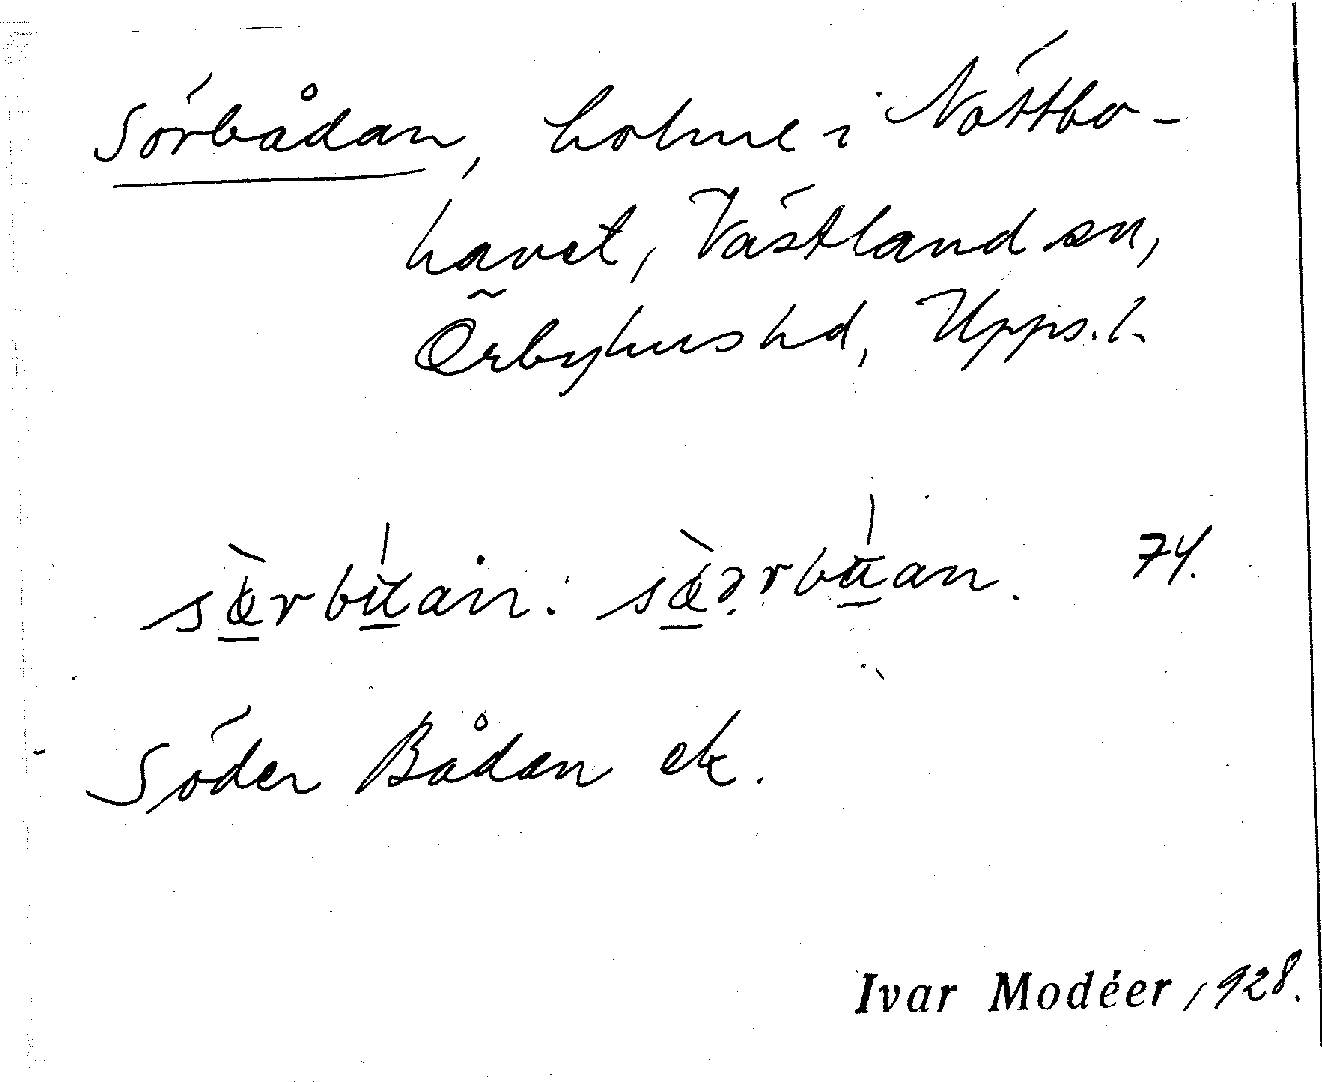 Sörbådan, holme i Nöttbo-
havet, Västland sn,
Örbyhus hd, Upps. l.
74.
Söder Bådan ek.
Ivar Modéer 1928.